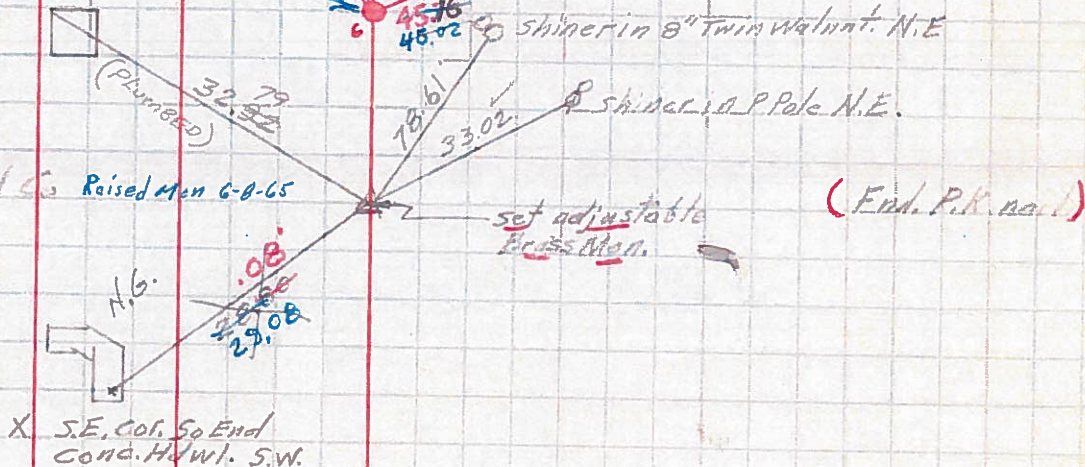 45.16
6
48.02
shiner in 8" Twin Walnut. N.E
(PLUMBED)
79
32.92
78.61'
33.02
shiner in P Pole N.E.
Co. Raised Mon 6-8-65
set adjustable
Brass Mon.
(End. P.K. nail)
.08'
N.G.
28.60
29.08
X S.E. Cor. So End
Conc. Hdwl. S.W.